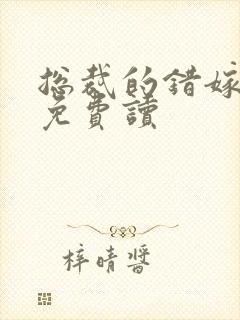 總裁的錯嫁
免費讀
梓晴醬